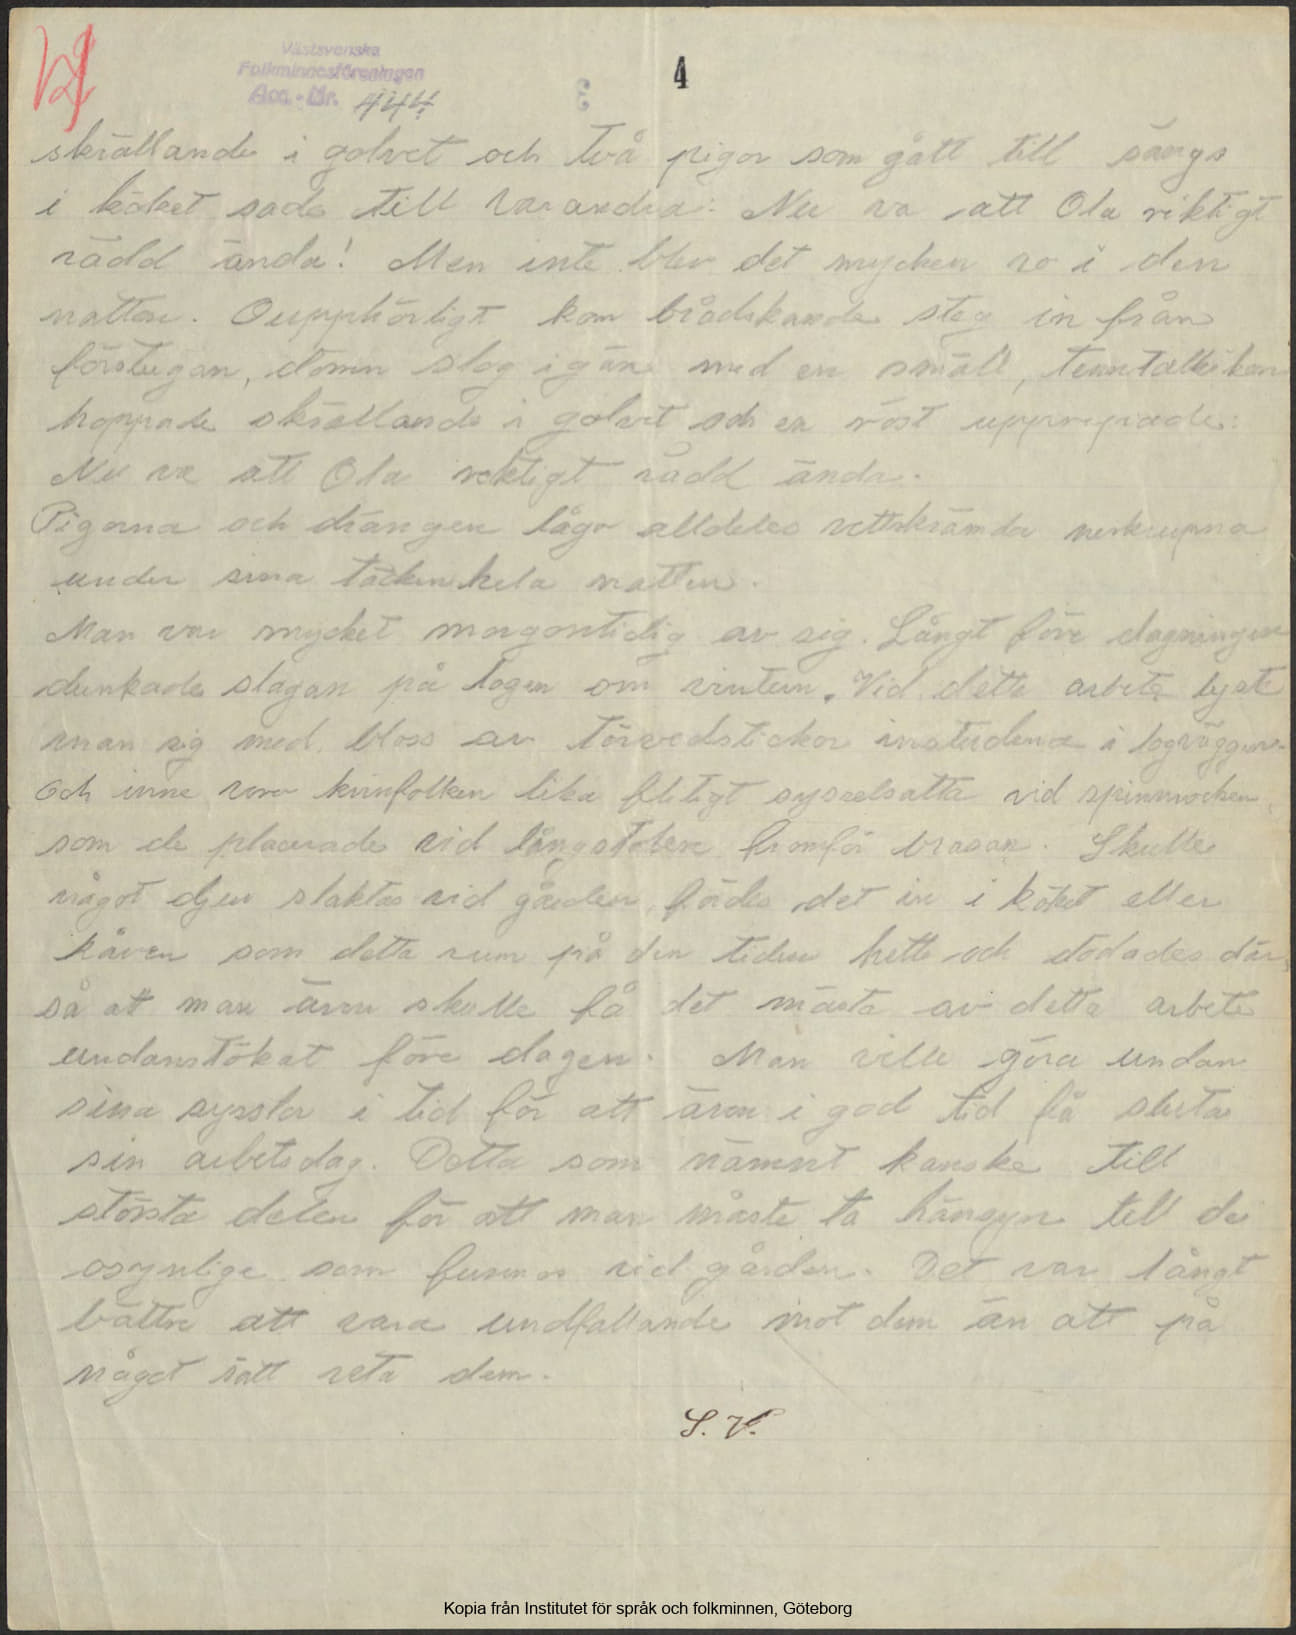 Västsvenska
Folkminnesföreningen
Acc.-Nr. 444
4
skrällande i golvet och två pigor som gått till sängs
i köket sade till varandra: Nu va att Ola riktigt
rädd ända! Men inte blev det mycken ro i den
natten. Oupphörligt kom brådskande steg in från
förstugan, dörrn slog igän med en smäll, tenntallrikan
hoppade skrällande i golvet och en röst upprepade:
Nu va att Ola riktigt rädd ända.
Pigorna och drängen lågo alldeles vettskrämda nerkrupna
under sina täcken hela natten.
Man var mycket morgontidig av sig. Långt före dagningen
dunkade slagan på logen om vintern. Vid detta arbete lyste
man sig med bloss av törvedstickor instuckna i logväggen.
Och inne voro kvinfolken lika flitigt sysselsatta vid spinnrocken
som de placerade vid långstolen framför brasan. Skulle
något djur slaktas vid gården fördes det in i köket eller
kåven som detta rum på den tiden hette och dödades där
så att man även skulle få det mästa av detta arbete
undanstökat före dagen. Man ville göra undan
sina sysslor i tid för att även i god tid få sluta
sin arbetsdag. Detta som nämnt kanske till
största delen för att man måste ta hänsyn till de
osynliga som funnos vid gården. Det var långt
bättre att vara undfallande mot dem än att på
något sätt reta dem.
S. V.
Kopia från Institutet för språk och folkminnen, Göteborg